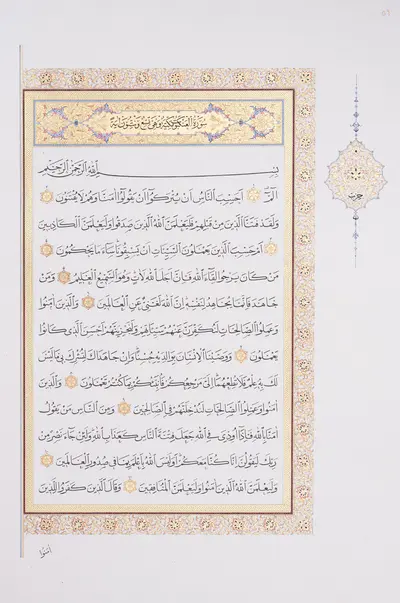 ٥٩
سورة العنكبوت مكية وهى تسع وستون آية
بسم الله الرحمن الرحيم
الم أحسب الناس أن يتركوا أن يقولوا آمنا وهم لا يفتنون
ولقد فتنا الذين من قبلهم فليعلمن الله الذين صدقوا وليعلمن الكاذبين
أم حسب الذين يعملون السيئات أن يسبقونا ساء ما يحكمون
من كان يرجوا لقاء الله فإن أجل الله لآت وهو السميع العليم ومن
جاهد فإنما يجاهد لنفسه إن الله لغني عن العالمين والذين آمنوا
وعملوا الصالحات لنكفرن عنهم سيئاتهم ولنجزينهم أحسن الذي كانوا
يعملون ووصينا الإنسان بوالديه حسنا وإن جاهداك لتشرك بي ما ليس
لك به علم فلا تطعهما إلي مرجعكم فأنبئكم بما كنتم تعملون والذين
آمنوا وعملوا الصالحات لندخلنهم في الصالحين ومن الناس من يقول
آمنا بالله فإذا أوذي في الله جعل فتنة الناس كعذاب الله ولئن جاء نصر من
ربك ليقولن إنا كنا معكم أوليس الله بأعلم بما في صدور العالمين
وليعلمن الله الذين آمنوا وليعلمن المنافقين وقال الذين كفروا للذين
آمنوا
حزب